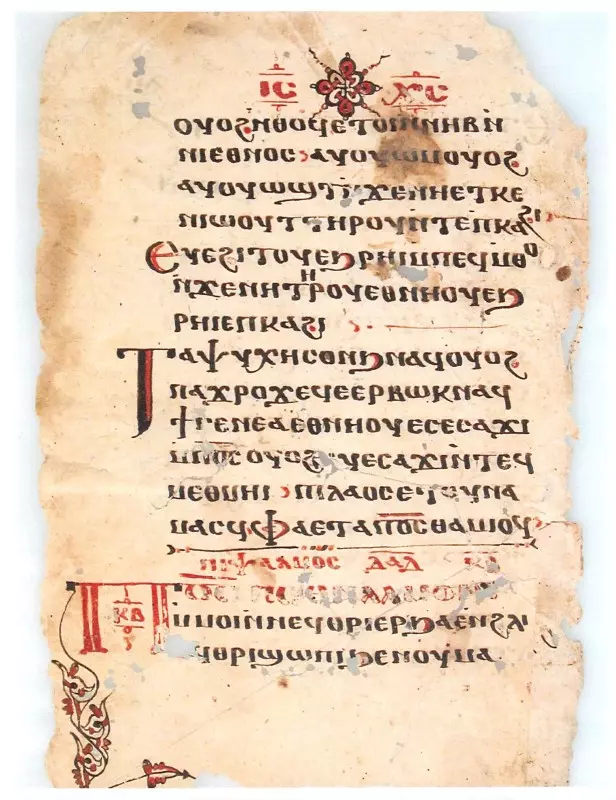 ⲓ̅ⲥ̅ ⲭ̅ⲥ̅
ⲟⲩⲟϩ ⲛⲑⲟϥ ⲉⲧⲟⲓ ⲛⲛⲏⲃ ⲛ
ⲛⲓⲉⲑⲛⲟⲥ ⲁⲩⲟⲩⲱⲙ ⲟⲩⲟϩ
ⲁⲩⲟⲩⲱϣⲧ ⲛϫⲉ ⲛⲏⲉⲧⲕⲉ
ⲛⲓⲱⲟⲩⲧ ⲧⲏⲣⲟⲩ ⲛⲧⲉ ⲡⲕⲁϩⲓ
ⲉⲩⲉϩⲓⲧⲟⲩ ⲉϧⲣⲏⲓ ⲙⲡⲉϥⲙⲑⲟ
ⲛϫⲉ ⲛⲏ ⲧⲏⲣⲟⲩ ⲉⲑⲛⲏⲟⲩ ⲉϧ
ⲣⲏⲓ ⲉⲡⲕⲁϩⲓ
ⲧⲁⲯⲩⲭⲏ ⲥⲟⲛϧ ⲛⲁϥ ⲟⲩⲟϩ
ⲡⲁϫⲣⲟϫ ⲉϥⲉⲉⲣⲃⲱⲕ ⲛⲁϥ
ϯⲅⲉⲛⲉⲁ ⲉⲑⲛⲏⲟⲩ ⲉⲥⲉⲥⲁϫⲓ
ⲙⲡ̅ϭ̅ⲥ̅ ⲟⲩⲟϩ ⲉⲩⲉⲥⲁϫⲓ ⲛⲧⲉϥ
ⲙⲉⲑⲙⲏⲓ ⲡⲓⲗⲁⲟⲥ ⲉⲧⲟⲩⲛⲁ
ⲙⲁⲥϥ ⲫⲁⲉⲧⲁ ⲡ̅ϭ̅ⲥ̅ ⲑⲁⲙⲓⲟϥ
ⲡⲓⲯⲁⲗⲙⲟⲥ ⲇ̅ⲁ̅ⲇ̅
ⲕⲃ
ⲙⲙⲟⲓ ⲛⲛⲉϥⲑⲣⲓⲉⲣϧⲁⲉ ⲛϩⲗⲓ
ⲁϥⲑⲣⲓϣⲱⲡⲓ ϧⲉⲛ ⲟⲩⲙⲁ